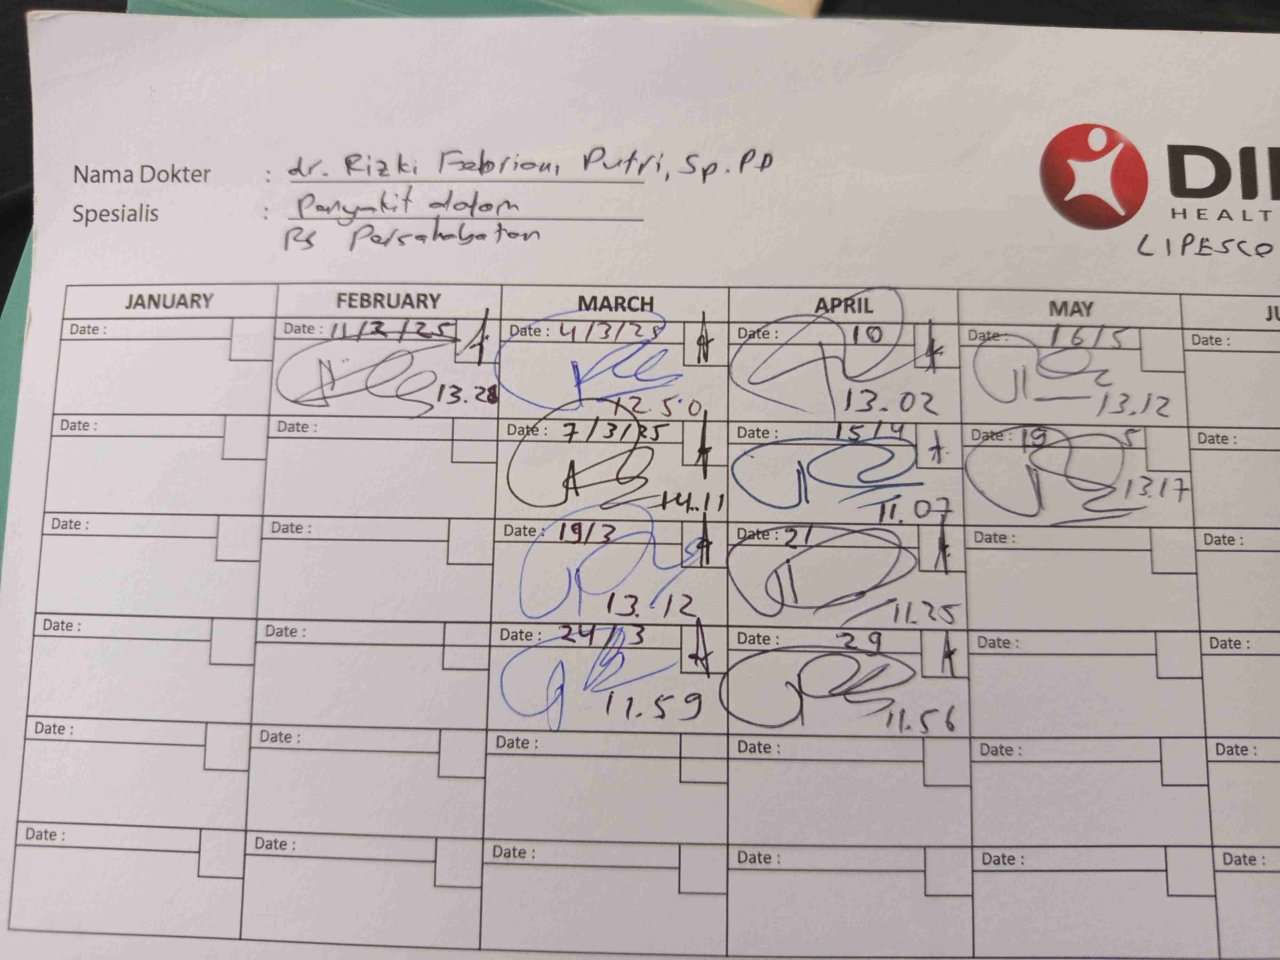 Nama Dokter : dr. Rizki Febriani Putri, Sp.PD
Spesialis : Penyakit dalam
RS Persahabatan
DI
HEALT
LIPESCO
JANUARY FEBRUARY MARCH APRIL MAY JU
Date : Date : 11/2/25 Date : 4/3/25 Date : 10 Date : 16/5 Date :
13.28 12.50 13.02 13.12
Date : Date : Date : 7/3/25 Date : 15/4 Date : 19 5 Date :
14.11 11.07 13.17
Date : Date : Date : 19/3 Date : 21 Date : Date :
13.12 11.25
Date : Date : Date : 24/3 Date : 29 Date : Date :
11.59 11.56
Date : Date : Date : Date : Date : Date :
Date : Date : Date : Date : Date : Date :